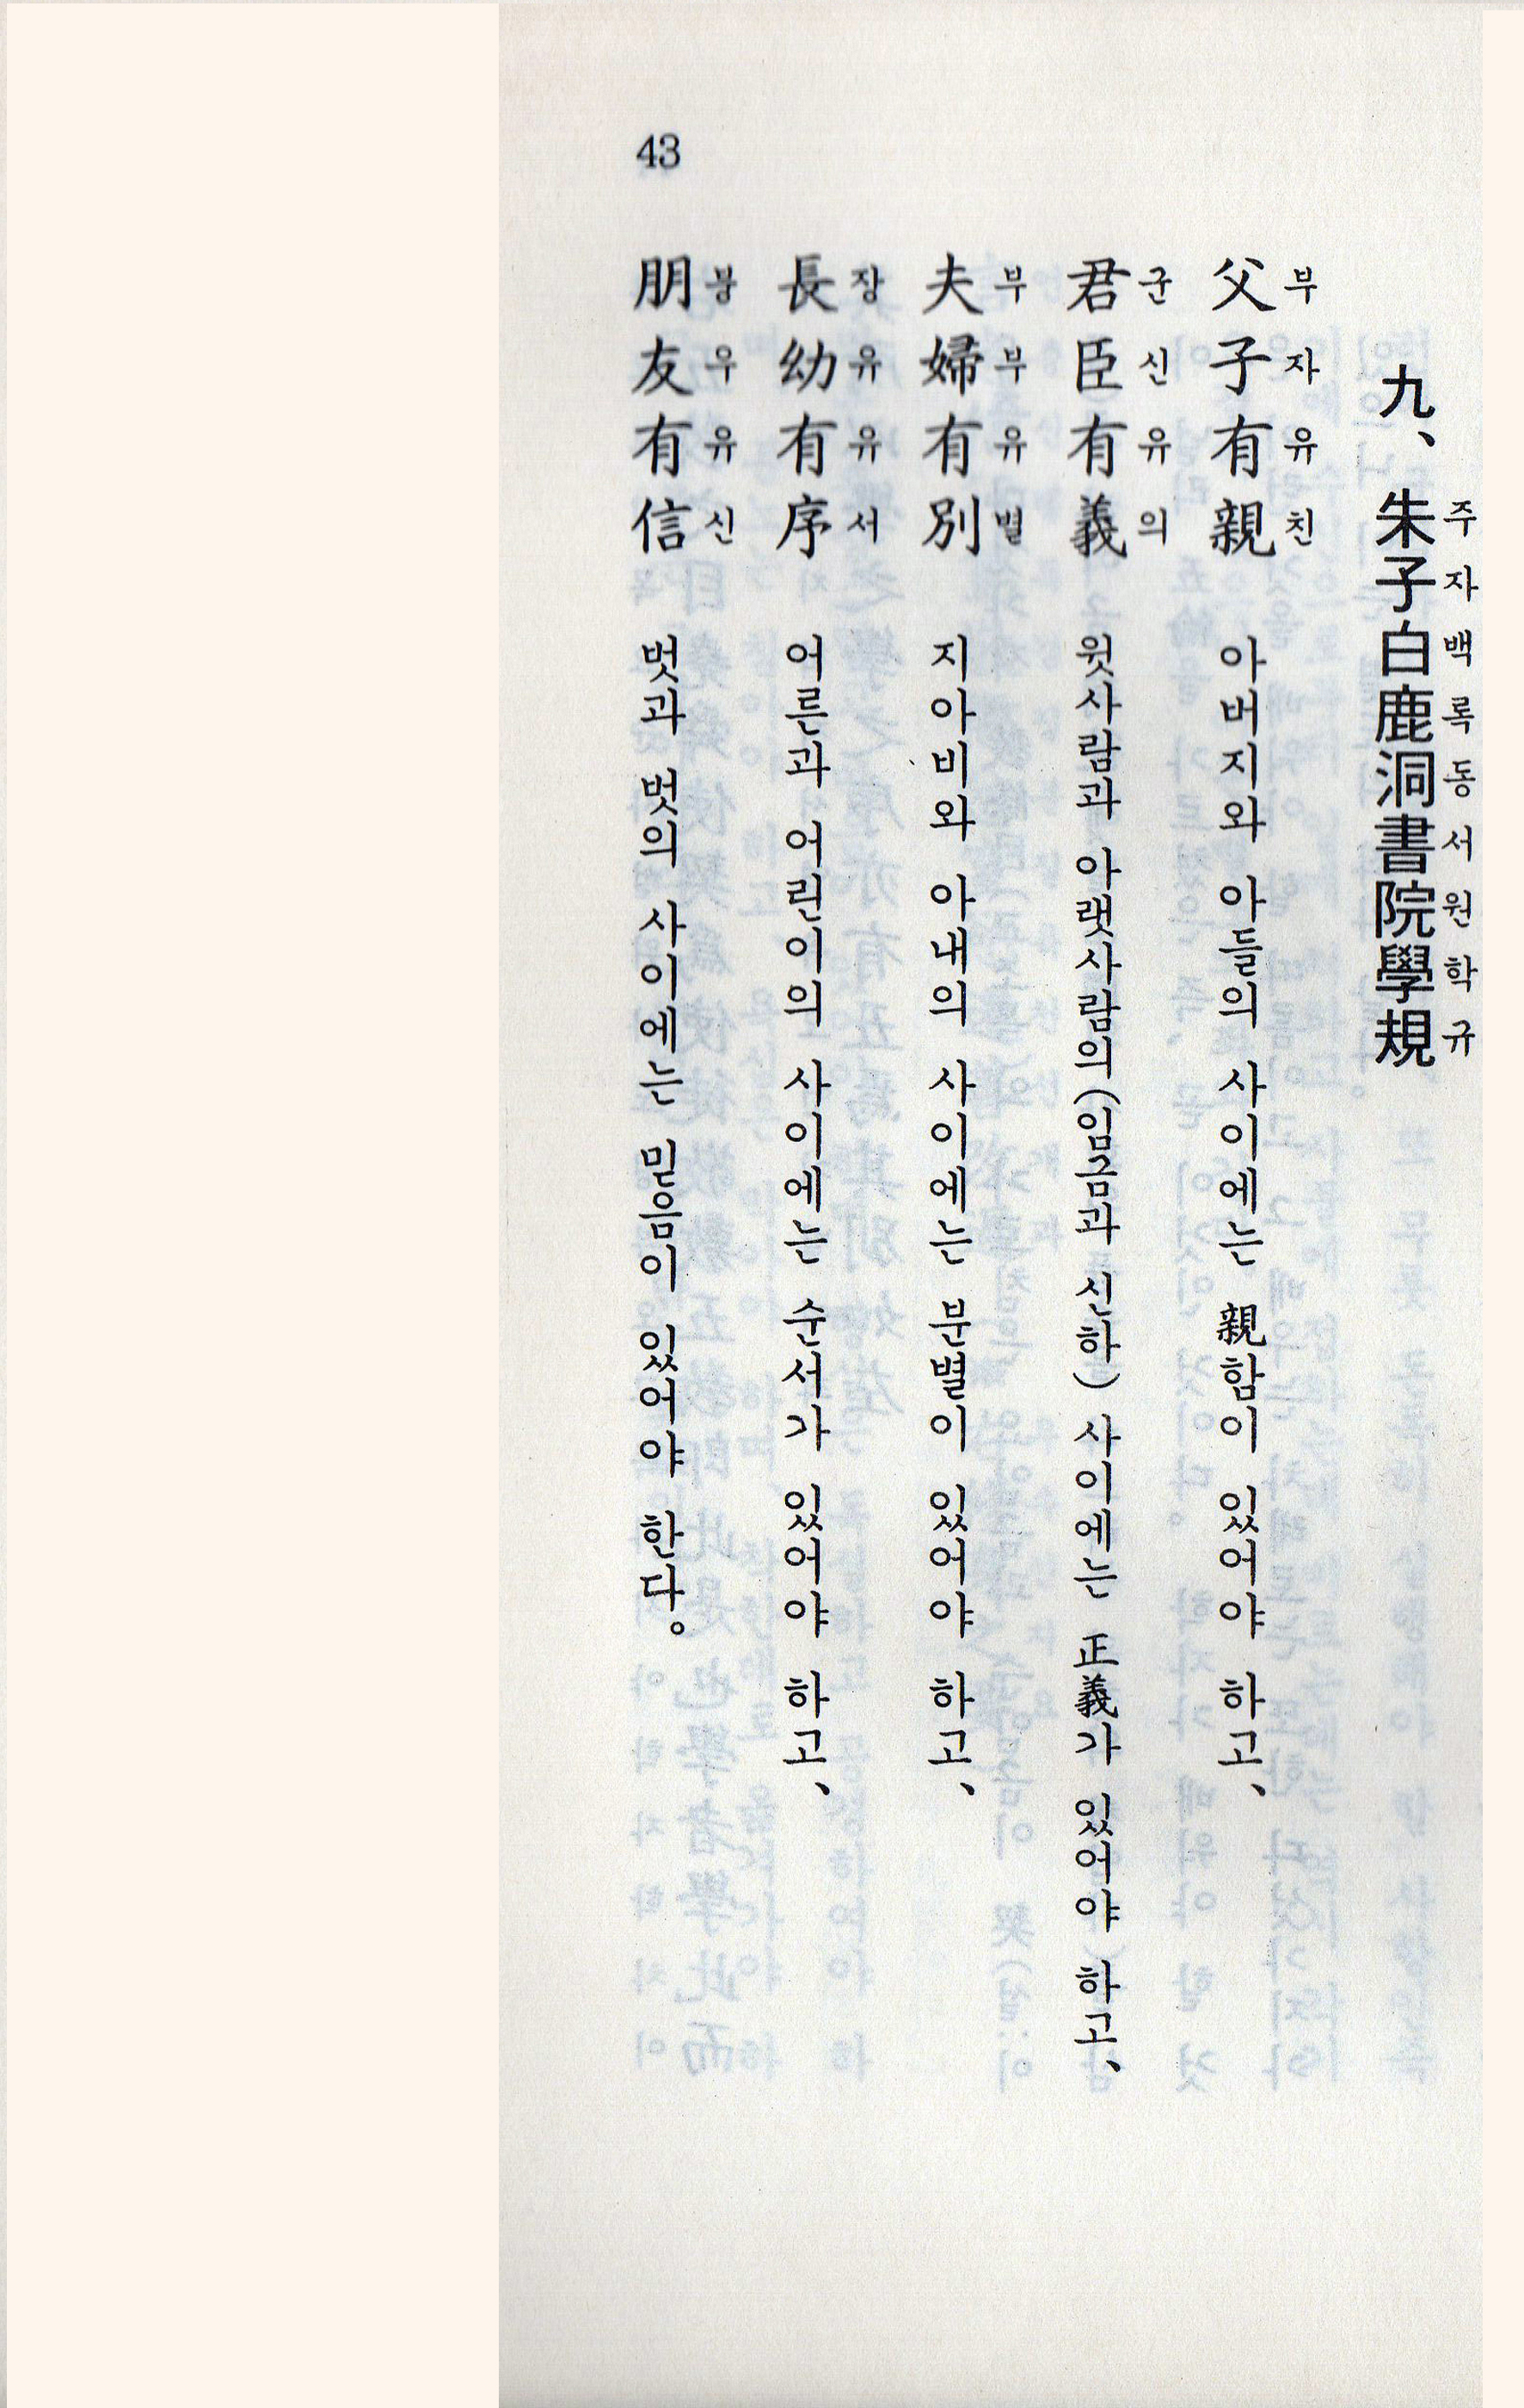 九、朱子白鹿洞書院學規
주자백록동서원학규
父子有親 아버지와 아들의 사이에는 親함이 있어야 하고、
부자유친
君臣有義 윗사람과 아랫사람의(임금과 신하) 사이에는 正義가 있어야 하고、
군신유의
夫婦有別 지아비와 아내의 사이에는 분별이 있어야 하고、
부부유별
長幼有序 어른과 어린이의 사이에는 순서가 있어야 하고、
장유유서
朋友有信 벗과 벗의 사이에는 믿음이 있어야 한다。
붕우유신
43